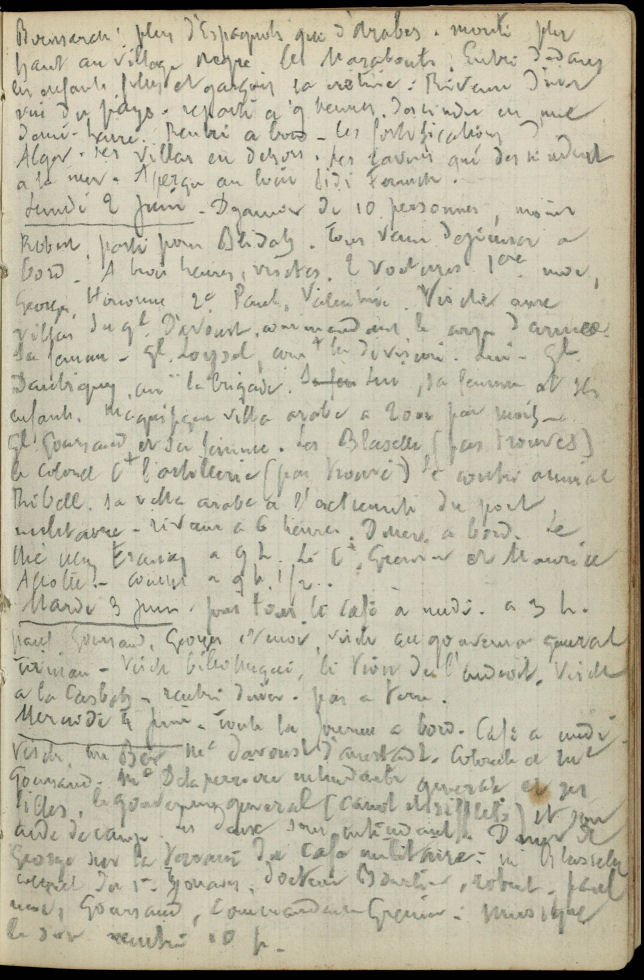 plus d'Espagnols que d'Arabes. monté plus
haut au village nègre les Marabouts. Entré dedans
les enfants filles et garçons
du pays. reparti à 9 heures. descendu en une
demi-heure. Rentré à bord - les fortifications d'
Alger. les villas en dehors. les ravins qui descendent
à la mer. Aperçu au loin Sidi Ferruch.
Lundi 2 Juin - Déjeuner de 10 personnes, moins
Robert, parti pour Blidah. Tous venus déjeuner à
bord. A trois heures, visites. 2 voitures 1ère moi,
George, 2e Paul, Valentine. Visite aux
villas du gl. D'avoust, commandant le corps d'armée
sa femme - gl. Loysel, comt la division. Lui - gl
la brigade. Lui, sa femme et ses
enfants. Magnifique villa arabe à 200 par mois -
gl Goursaud et sa femme. Les Blaselle (pas trouvés)
le colonel Ct l'artillerie (pas trouvé) le contre amiral
Ribell. sa villa arabe à l'extrémité du port
militaire - revenu à 6 heures. Diner à bord. Le
thé à 9 h. Le Ct. Grenier et Maurice
couché à 9 h. 1/2..
Mardi 3 Juin. pris tous le café à midi. a 3 h.
Paul Goursaud, George et moi, visite au gouverneur général
Tirman - visite bibliothèque, le vieux de l'endroit. Visite
a la Casbah - rentré diner. pas à terre.
Mercredi 4 Juin - Toute la journée à bord. Café à midi.
Visite, Me d'avoust d'auerstadt. Colonel et Me
Goursaud. Me Delaperrierre intendante générale et ses
filles, le gouverneur général (canot et sifflets) et son
aide de camp. les deux sous intendants. Diner de
George sur la terrasse du café militaire: M Blaselle
colonel du 1er Zouaves, docteur, Robert. Paul
moi, Goursaud, Commandant Grenier. Musique
le soir rentré 10 h.